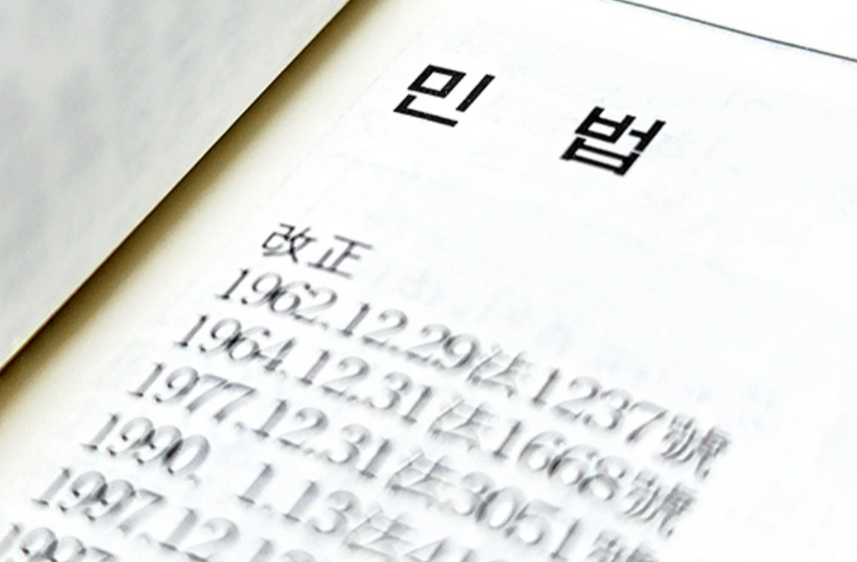 민 법
改正
1962.12.29法1237號
1964.12.31法1668號
1977.12.31法3051號
1990. 1.13法
1997.12